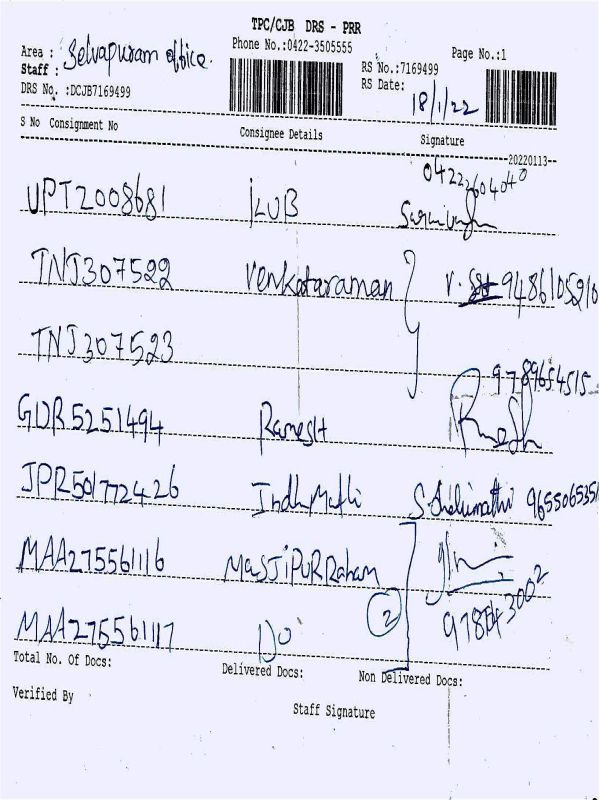 TPC/CJB DRS - PRR
Phone No.:0422-3505555
Page No.:1
Area : Selvapuram office.
Staff :
RS No.:7169499
DRS No. :DCJB7169499
RS Date: 18/1/22
S No Consignment No Consignee Details Signature
20220113
04222604040
UPT2008681 ILUB
TNJ307522 Venkataraman V. 9486105910
TNJ307523
9789654515
GDR5251494 Ramesh Ramesh
JPR501772426 IndhuMathi 9655065351
MAA275561116 MasJiPURRaham
2
MAA275561117 Do
Total No. Of Docs: Delivered Docs: Non Delivered Docs:
Verified By Staff Signature